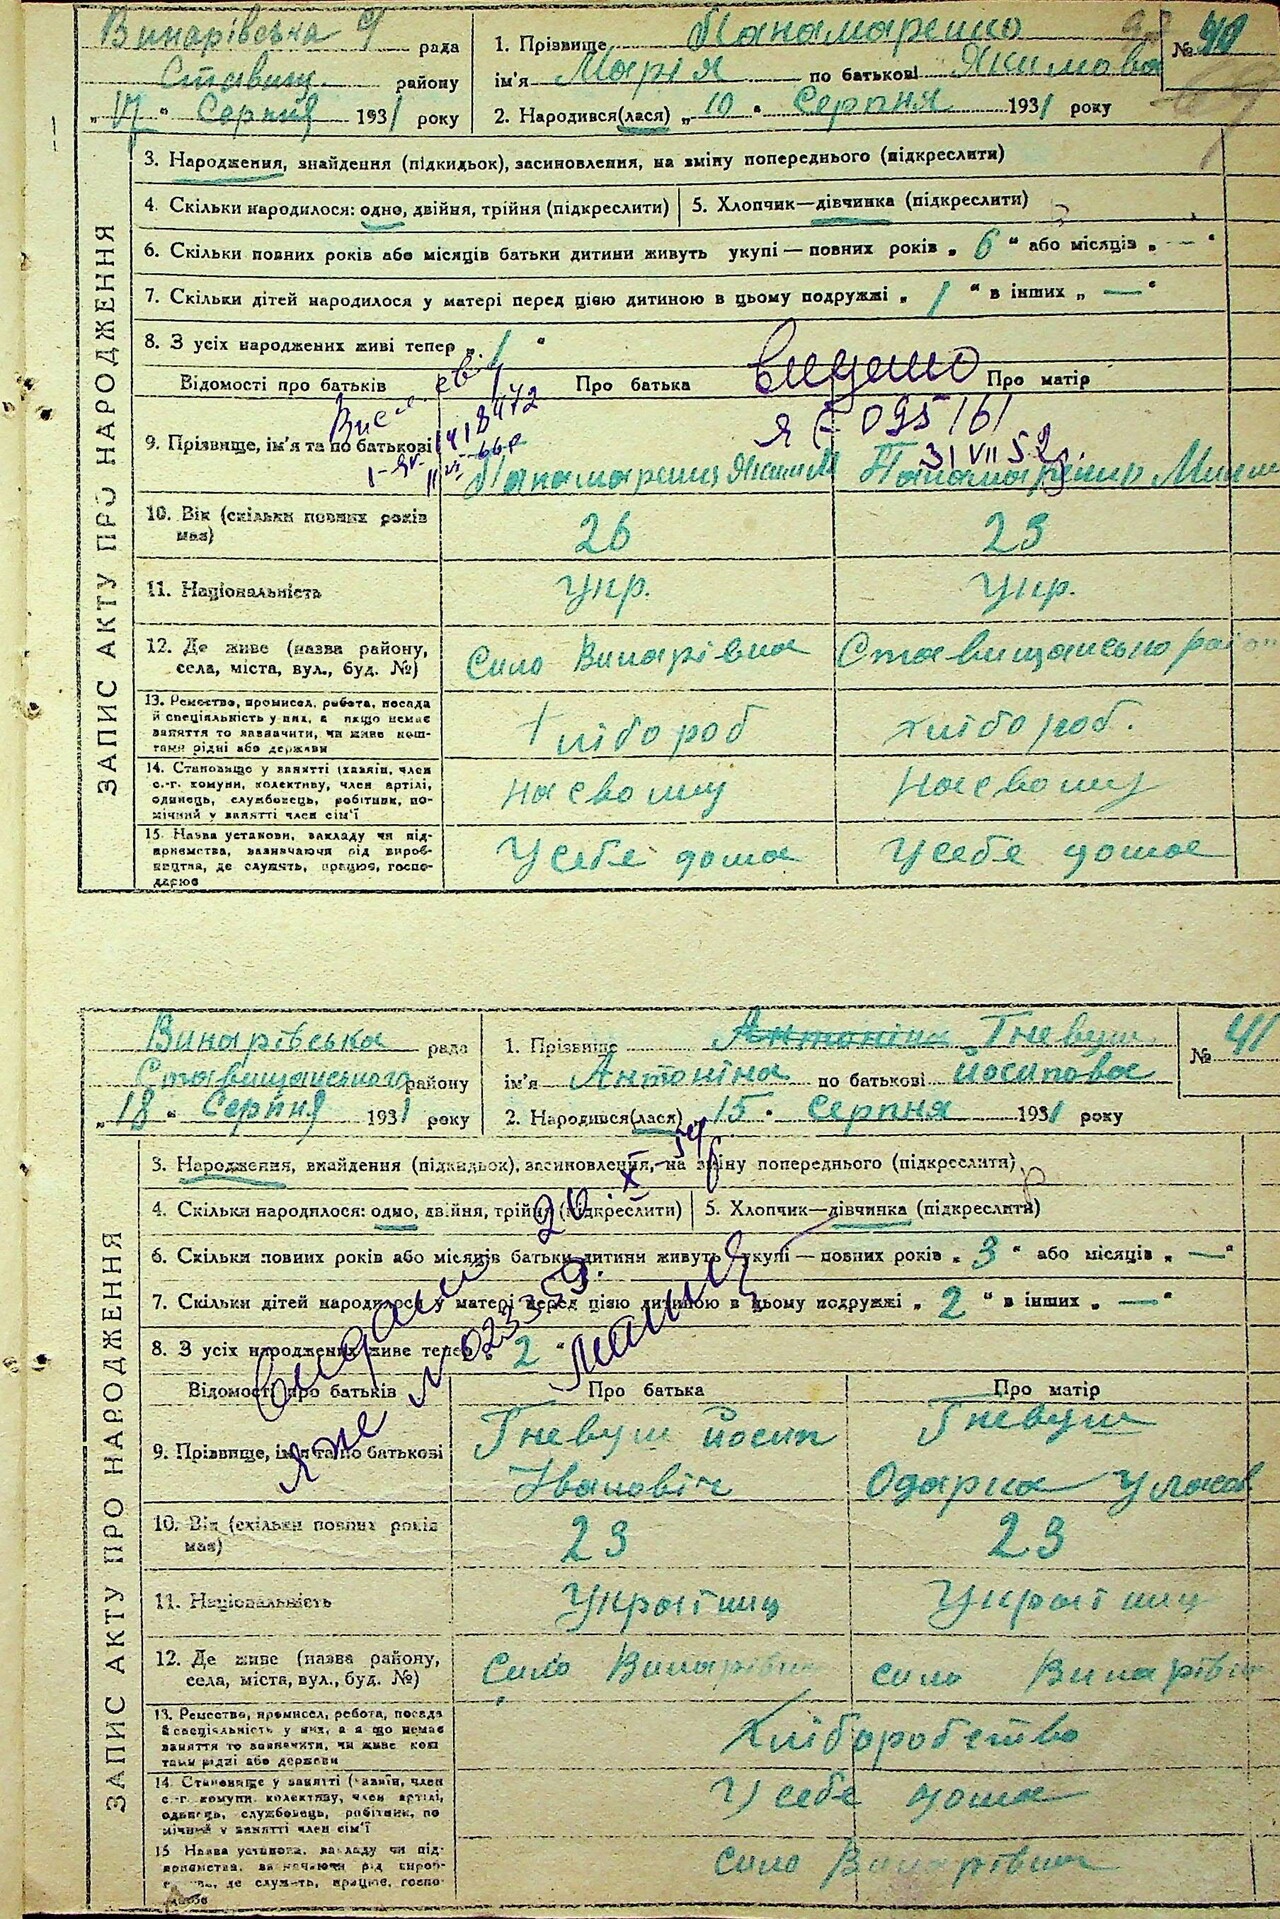 Винарівська рада
Ставищ. району
„17" Серпня 1931 року
1. Прізвище Панамаренко
ім'я Марія по батькові Якимова
№ 40
2. Народився(лася) „10" Серпня 1931 року
ЗАПИС АКТУ ПРО НАРОДЖЕННЯ
3. Народження, знайдення (підкидьок), засиновлення, на зміну попереднього (підкреслити)
4. Скільки народилося: одно, двійня, трійня (підкреслити)
5. Хлопчик—дівчинка (підкреслити)
6. Скільки повних років або місяців батьки дитини живуть укупі — повних років „ 6 " або місяців „ — "
7. Скільки дітей народилося у матері перед цією дитиною в цьому подружжі „ 1 " в інших „ — "
8. З усіх народжених живі тепер „ 1 "
Відомості про батьків Про батька Про матір
095161
31 VII 52
9. Прізвище, ім'я та по батькові
10. Вік (скільки повних років мав) 26 23
11. Національність Укр. Укр.
12. Де живе (назва району, села, міста, вул., буд. №) Село Винарівка Ставищанського район
13. Ремество, промисел, робота, посада й спеціяльність у них, а якщо немає заняття то зазначити, чи живе коштами рідні або держави
хлібороб хлібороб.
14. Становище у занятті (хазяїн, член с.-г. комуни, колективу, член артілі, одинець, службовець, робітник, помічний у занятті член сім'ї
на своему на своему
15. Назва установи, закладу чи підприємства, зазначаючи рід виробництва, де служить, працює, господарює
У себе дома У себе дома
Винарівська рада
Ставищанського району
„18" Серпня 1931 року
1. Прізвище Антоніна Гневуш
ім'я Антоніна по батькові Йосипова
№ 41
2. Народився(лася) 15 " Серпня 1931 року
ЗАПИС АКТУ ПРО НАРОДЖЕННЯ
3. Народження, знайдення (підкидьок), засиновлення, на зміну попереднього (підкреслити)
4. Скільки народилося: одно, двійня, трійня (підкреслити)
5. Хлопчик—дівчинка (підкреслити)
6. Скільки повних років або місяців батьки дитини живуть укупі — повних років „ 3 " або місяців „ — "
7. Скільки дітей народилося у матері перед цією дитиною в цьому подружжі „ 2 " в інших „ — "
8. З усіх народжених живе тепер „ 2 "
Відомості про батьків Про батька Про матір
9. Прізвище, ім'я та по батькові
Гневуш Йосип Гневуш
Івановіч Одарка
10. Вік (скільки повних років мав) 23 23
11. Національність Україниц Україниц
12. Де живе (назва району, села, міста, вул., буд. №) Село Винарівка село Винарівка
13. Ремество, промисел, робота, посада й спеціяльність у них, а якщо немає заняття то зазначити, чи живе коштами рідні або держави
Хліборобство
14. Становище у занятті (хазяїн, член с.-г. комуни, колективу, член артілі, одинець, службовець, робітник, помічний у занятті член сім'ї
У себе дома
15 Назва установи, закладу чи підприємства, зазначаючи рід виробництва, де служить, працює, господарює
Село Винарівка